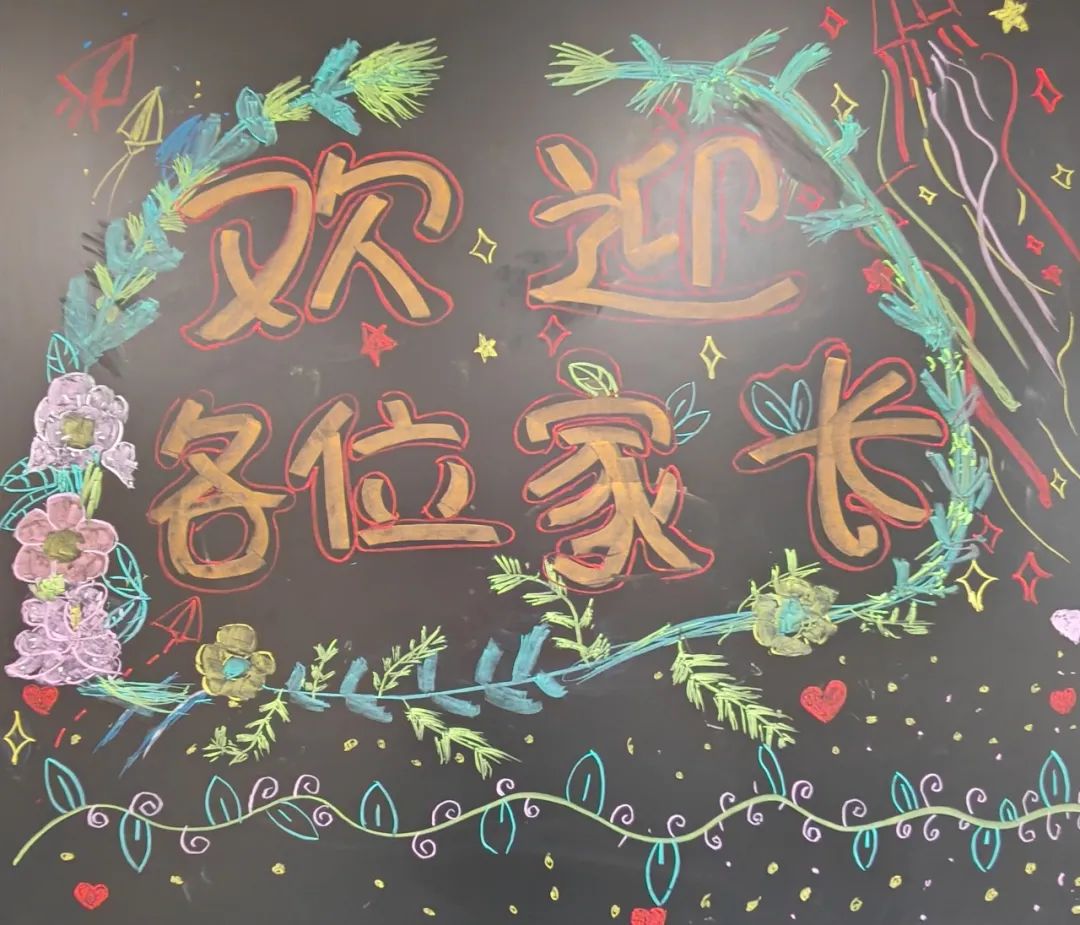 欢迎
各位家长